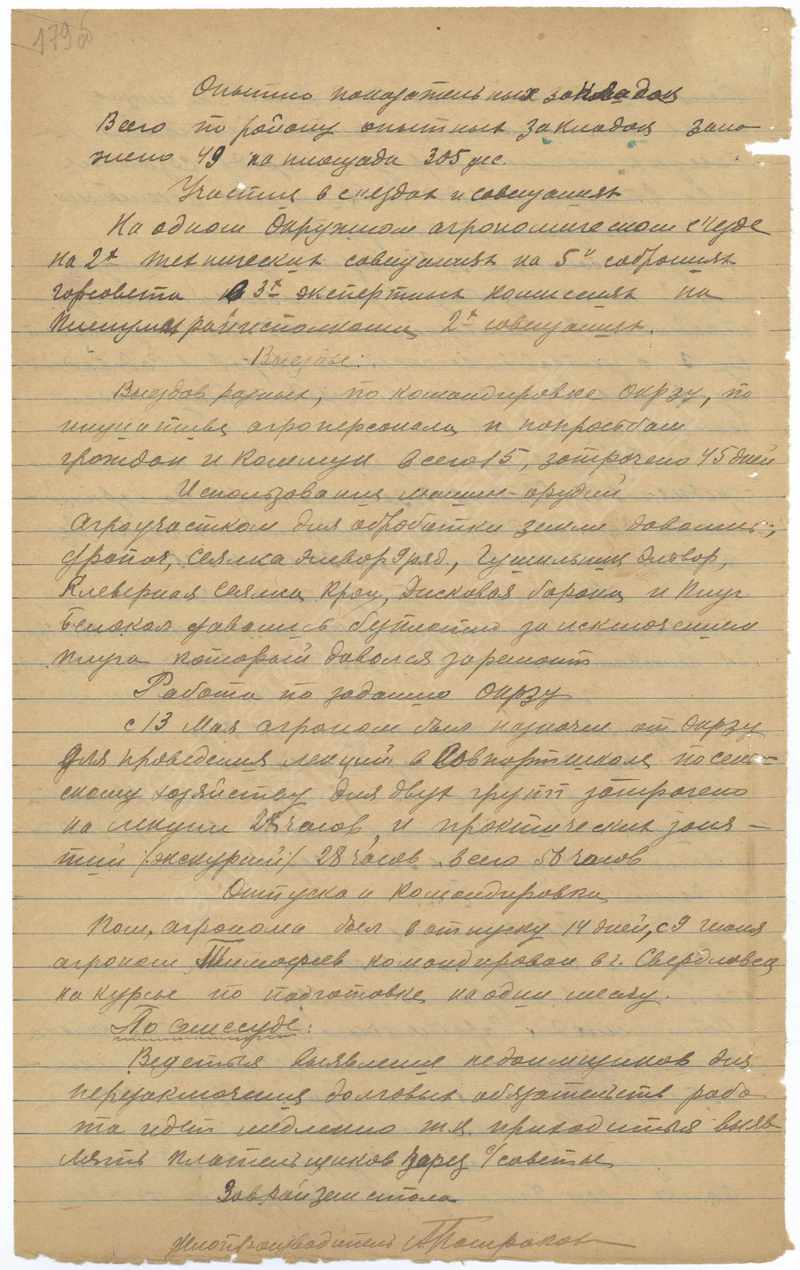 179 об
Опытно показательных закладок
Всего по району опытных закладок зало-
жено 49 на площади 305 дес.
Участие в съездах и совещаниях
На одном Окружном агрономическом съезде
на 2х технических совещаниях на 5и собраниях
горсовета в 3х экспертных комиссиях на
пленумах райисполкома 2х совещаниях.
Выезды:
Выездов разных, по командировке Окрзу, по
инициативе агроперсонала и по просьбам
граждан и коммун всего 15, затрачено 45 дней
Использование машин-орудий
Агроучастком для обработки земли давались;
сеялка 9 ряд,
Клеверная сеялка Крон, Дисковая борона и плуг
давались бесплатно за исключением
плуга который давался за ремонт
Работа по заданию Окрзу
с 13 Мая агроном был назначен от Окрзу
для проведения лекций в Совпартшколе по сель-
скому хозяйству для двух групп затрачено
на лекции 28 часов и практических заня-
тий /экскурсий/ 28 часов всего 56 часов
Отпуска и командировки
Пом. агронома был в отпуску 14 дней, с 9 июня
агроном Тимофеев командирован в г. Свердловск
на курсы по подготовке на один месяц.
По семссуде:
Ведется выявление недоимщиков для
перезаключения долговых обязательств рабо
та идет медленно т.к. приходится выяв
лять плательщиков через с/советы
Зав райземстола
Делопроизводитель